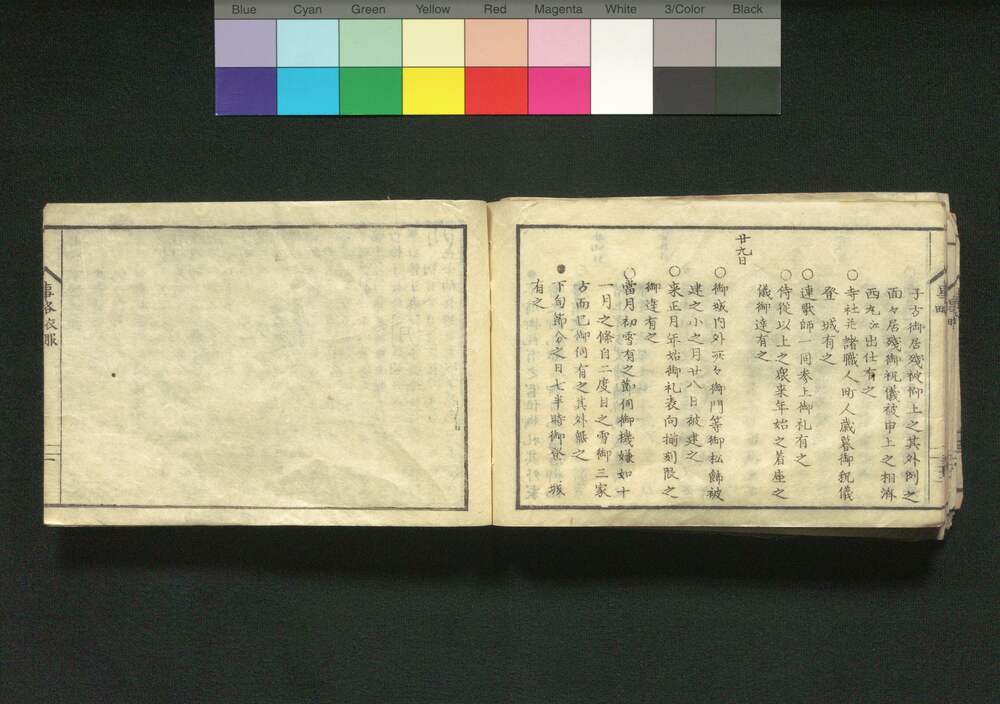 Blue Cyan Green Yellow Red Magenta White 3/Color Black
子古御居残被仰上之其外例之
面々居残御祝儀被申上之相済
西丸江出仕有之
○寺社并諸職人町人歳暮御祝儀
登 城有之
○連歌師一同参上御札有之
○侍従以上之衆来年始之着座之
儀御達有之
廿九日
○御城内外所々御門等御松飾被
建之小之月廿八日被建之
○来正月年始御礼表向揃刻限之
御達有之
○當月初雪有之節伺御機嫌如十
一月之條自二度目之雪御三家
方而已御伺有之其外無之
●下旬節分之日七半時御登 城
有之